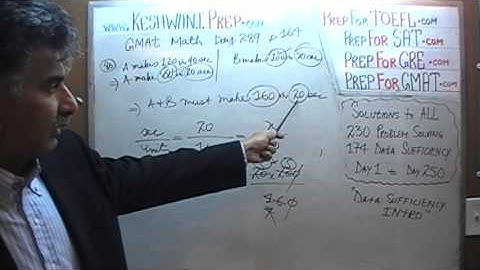 www.KESHWINIPREP.com
GMAT MATH DAY 289 P 164
A makes 120 in 40 sec
B makes 100 in 20 sec
⇒ A makes 60 in 20 sec
⇒ A+B must make 160 in 20 sec
sec
unit
=
20
=
x
PREPFORTOEFL.com
PREPFORSAT.com
PREPFORGRE.com
PREPFORGMAT.com
SOLUTIONS TO ALL
230 PROBLEM SOLVING
174 DATA SUFFICIENCY
DAY 1 to DAY 250
"DATA SUFFICIENCY
INTRO"